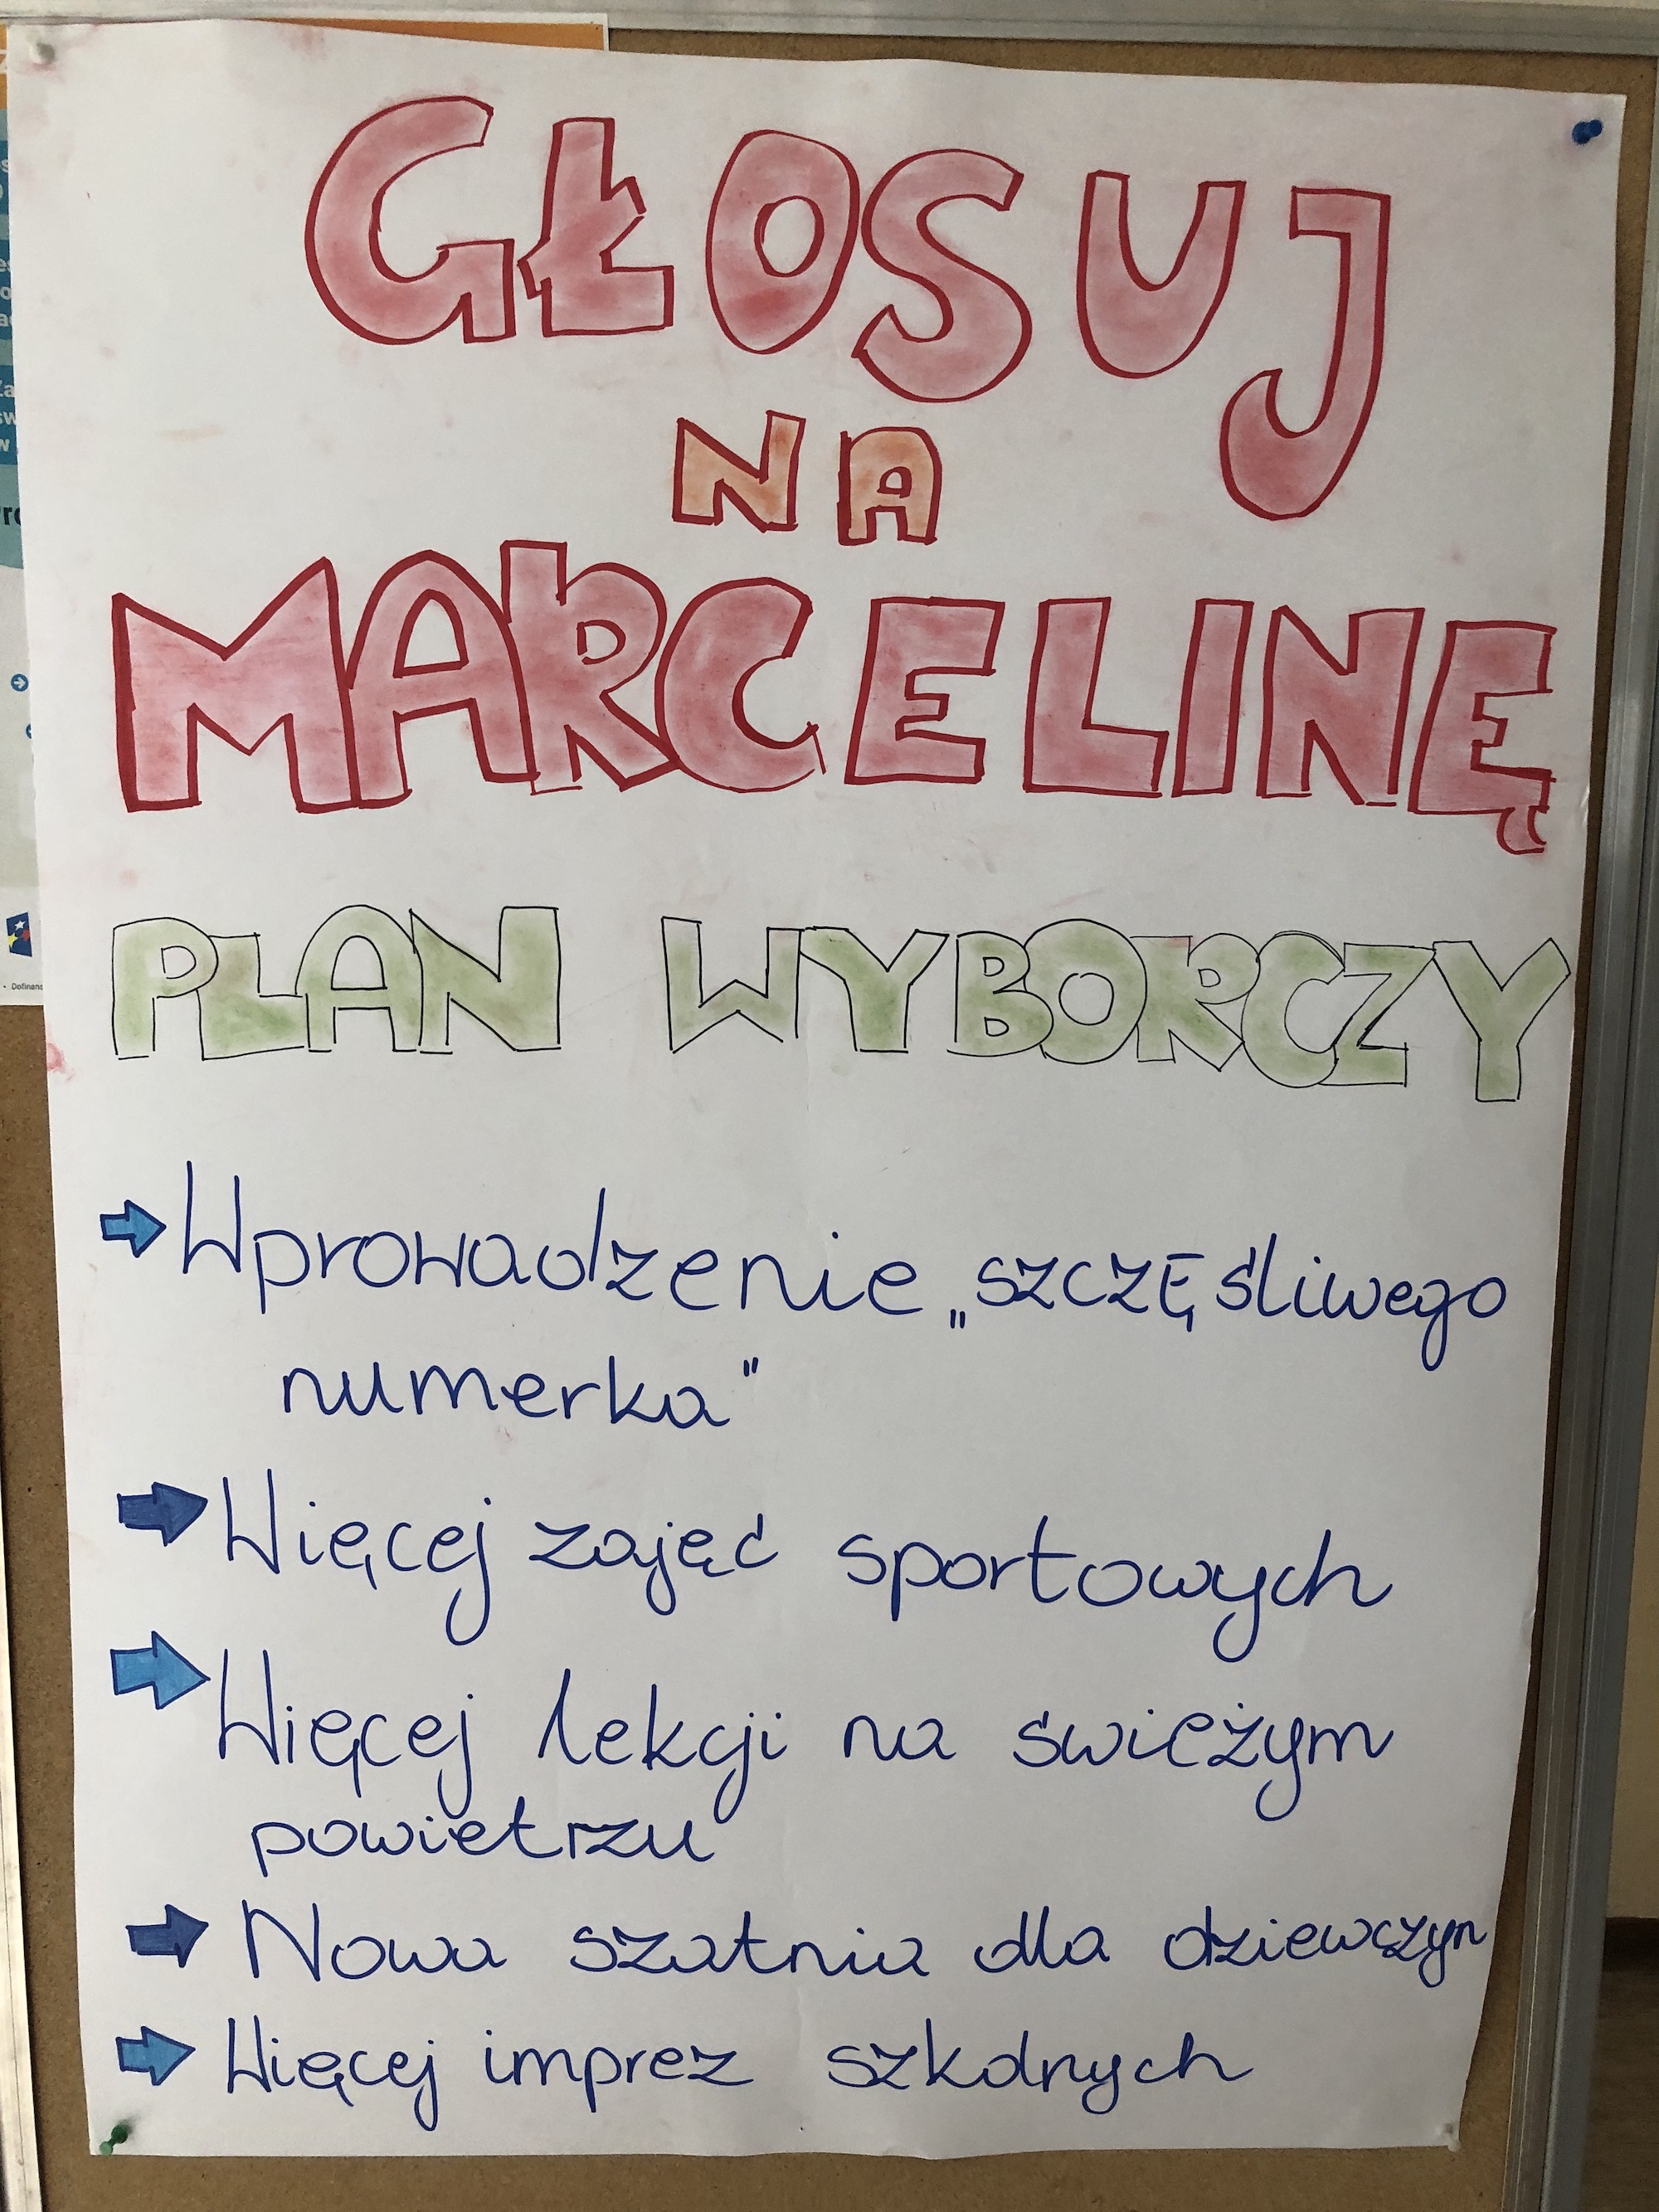 GŁOSUJ
NA
MARCELINĘ
PLAN WYBORCZY
Wprowadzenie „szczĘśliwego
numerka"
Więcej zajęć sportowych
Więcej lekcji na świeżym
powietrzu
Nowa szatnia dla dziewczyn
Więcej imprez szkolnych
Dofinans